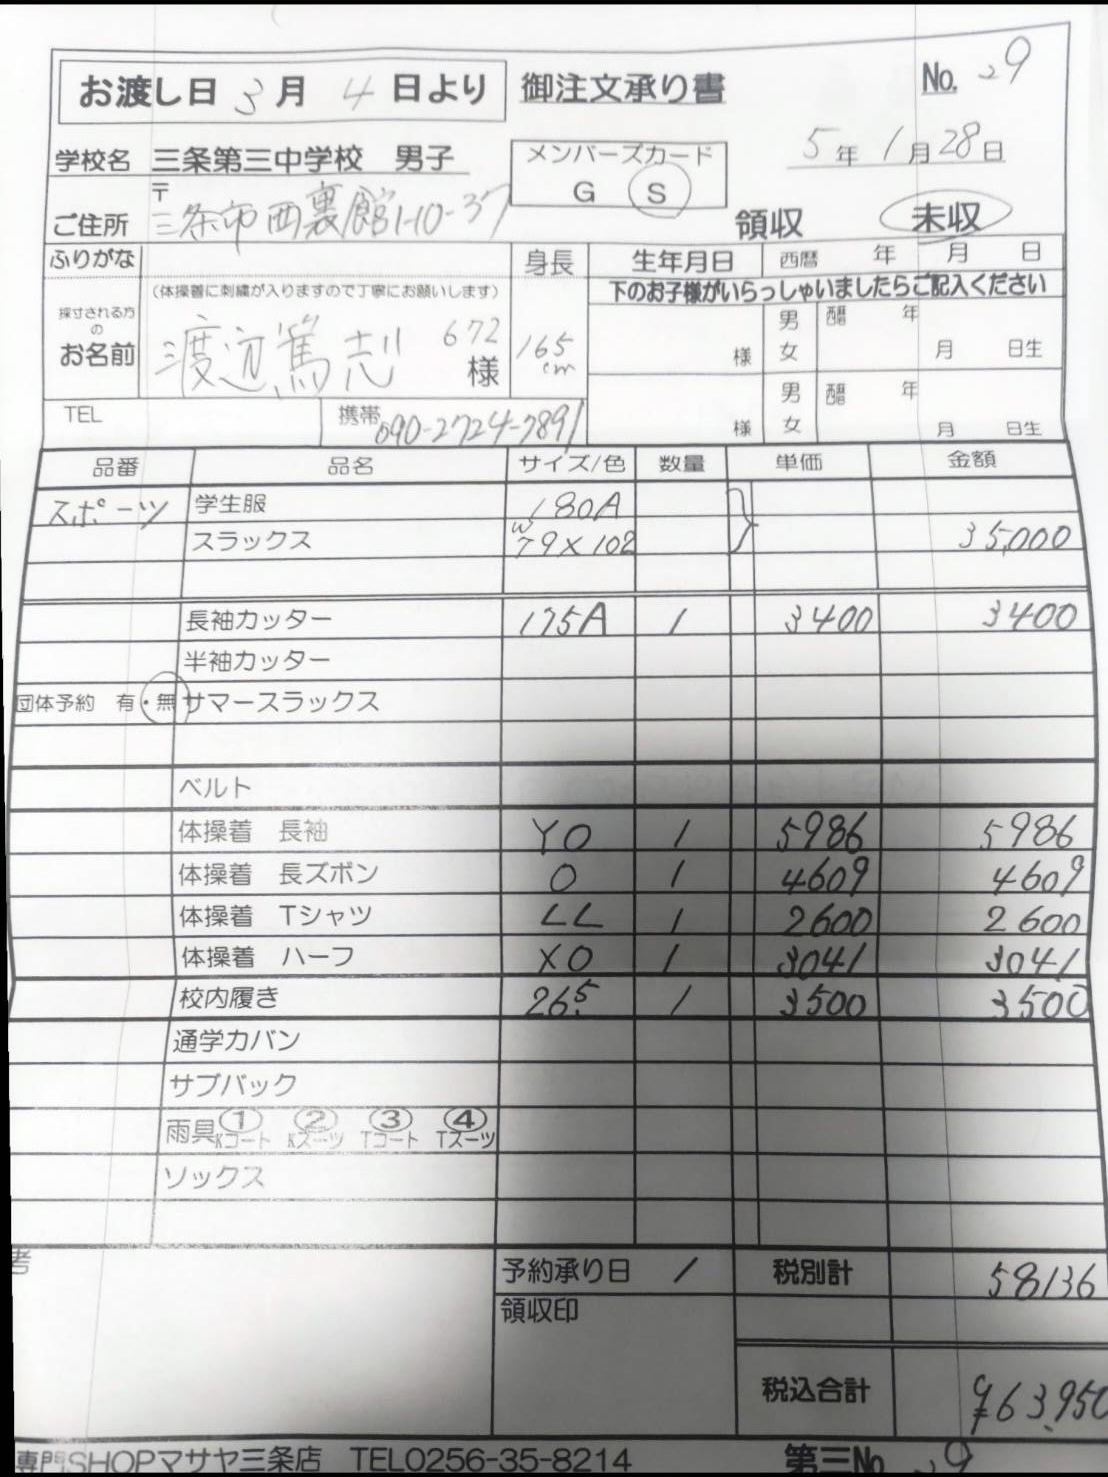 お渡し日 3月 4日より 御注文承り書 No. 29
学校名 三条第三中学校 男子 メンバーズカード G S 5年 1月 28日
〒
ご住所 三条市西裏館1-10-37 領収 未収
ふりがな 身長 生年月日 西暦 年 月 日
(体操着に刺繍が入りますので丁寧にお願いします) 下のお子様がいらっしゃいましたらご記入ください
採寸される方のお名前 渡辺篤志 672 様 165cm
様 男 女 西暦 年 月 日生
様 男 女 西暦 年 月 日生
TEL 携帯 090-2724-7891
品番 品名 サイズ/色 数量 単価 金額
スポーツ 学生服 180A
スラックス W79×102 35,000
長袖カッター 175A 1 3400 3400
半袖カッター
団体予約 有・無 サマースラックス
ベルト
体操着 長袖 YO 1 5986 5986
体操着 長ズボン O 1 4609 4609
体操着 Tシャツ LL 1 2600 2600
体操着 ハーフ XO 1 3041 3041
校内履き 26.5 1 3500 3500
通学カバン
サブバック
雨具 ①Kコート ②Kスーツ ③Tコート ④Tスーツ
ソックス
考 予約承り日 / 税別計 58136
領収印
税込合計 ¥63,950
専門SHOPマサヤ三条店 TEL0256-35-8214 第三No 29